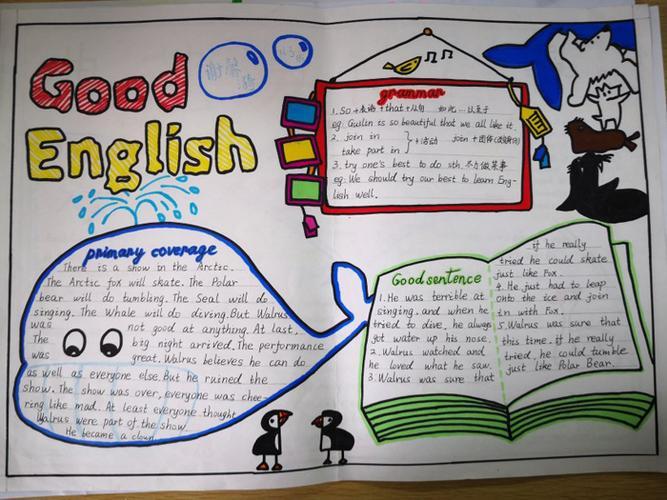 Good
English
grammar
1. So + 表语 + that + 从句 如此...以至于
eg: Guilin is so beautiful that we all like it.
2. join in
take part in } + 活动 join + 团体
3. try one's best to do sth. 尽力做某事
eg: We should try our best to learn Eng-
lish well.
primary coverage
There is a show in the Arctic.
The Arctic fox will skate. The Polar
bear will do tumbling. The Seal will do
singing. The Whale will do diving. But Walrus
was not good at anything. At last.
The big night arrived. The performance
was great. Walrus believes he can do
as well as everyone else. But he ruined the
show. The show was over, everyone was chee-
ring like mad. At least everyone thought
Walrus were part of the show.
He became a clown.
Good sentence
1. He was terrible at
singing. and when he
tried to dive, he always
got water up his nose.
2. Walrus watched and
he loved what he saw.
3. Walrus was sure that
if he really
tried he could skate
just like Fox.
4. He just had to leap
onto the ice and join
in with Fox.
5. Walrus was sure that
this time. if he really
tried, he could tumble
just like Polar Bear.